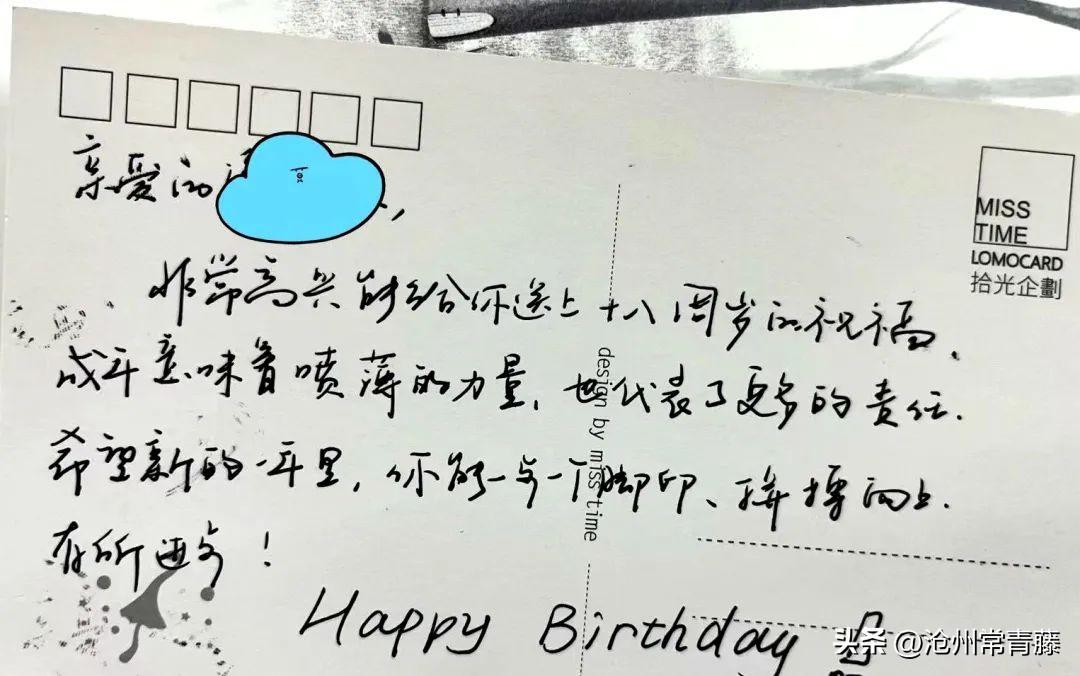 亲爱的
非常高兴能给你送上十八周岁的祝福,
成年意味着喷薄的力量,也代表了更多的责任.
希望新的一年里,你能一步一个脚印、拼搏向上.
有所进步!
Happy Birthday
MISS
TIME
LOMOCARD
拾光企劃
design by miss time
头条 @沧州常青藤